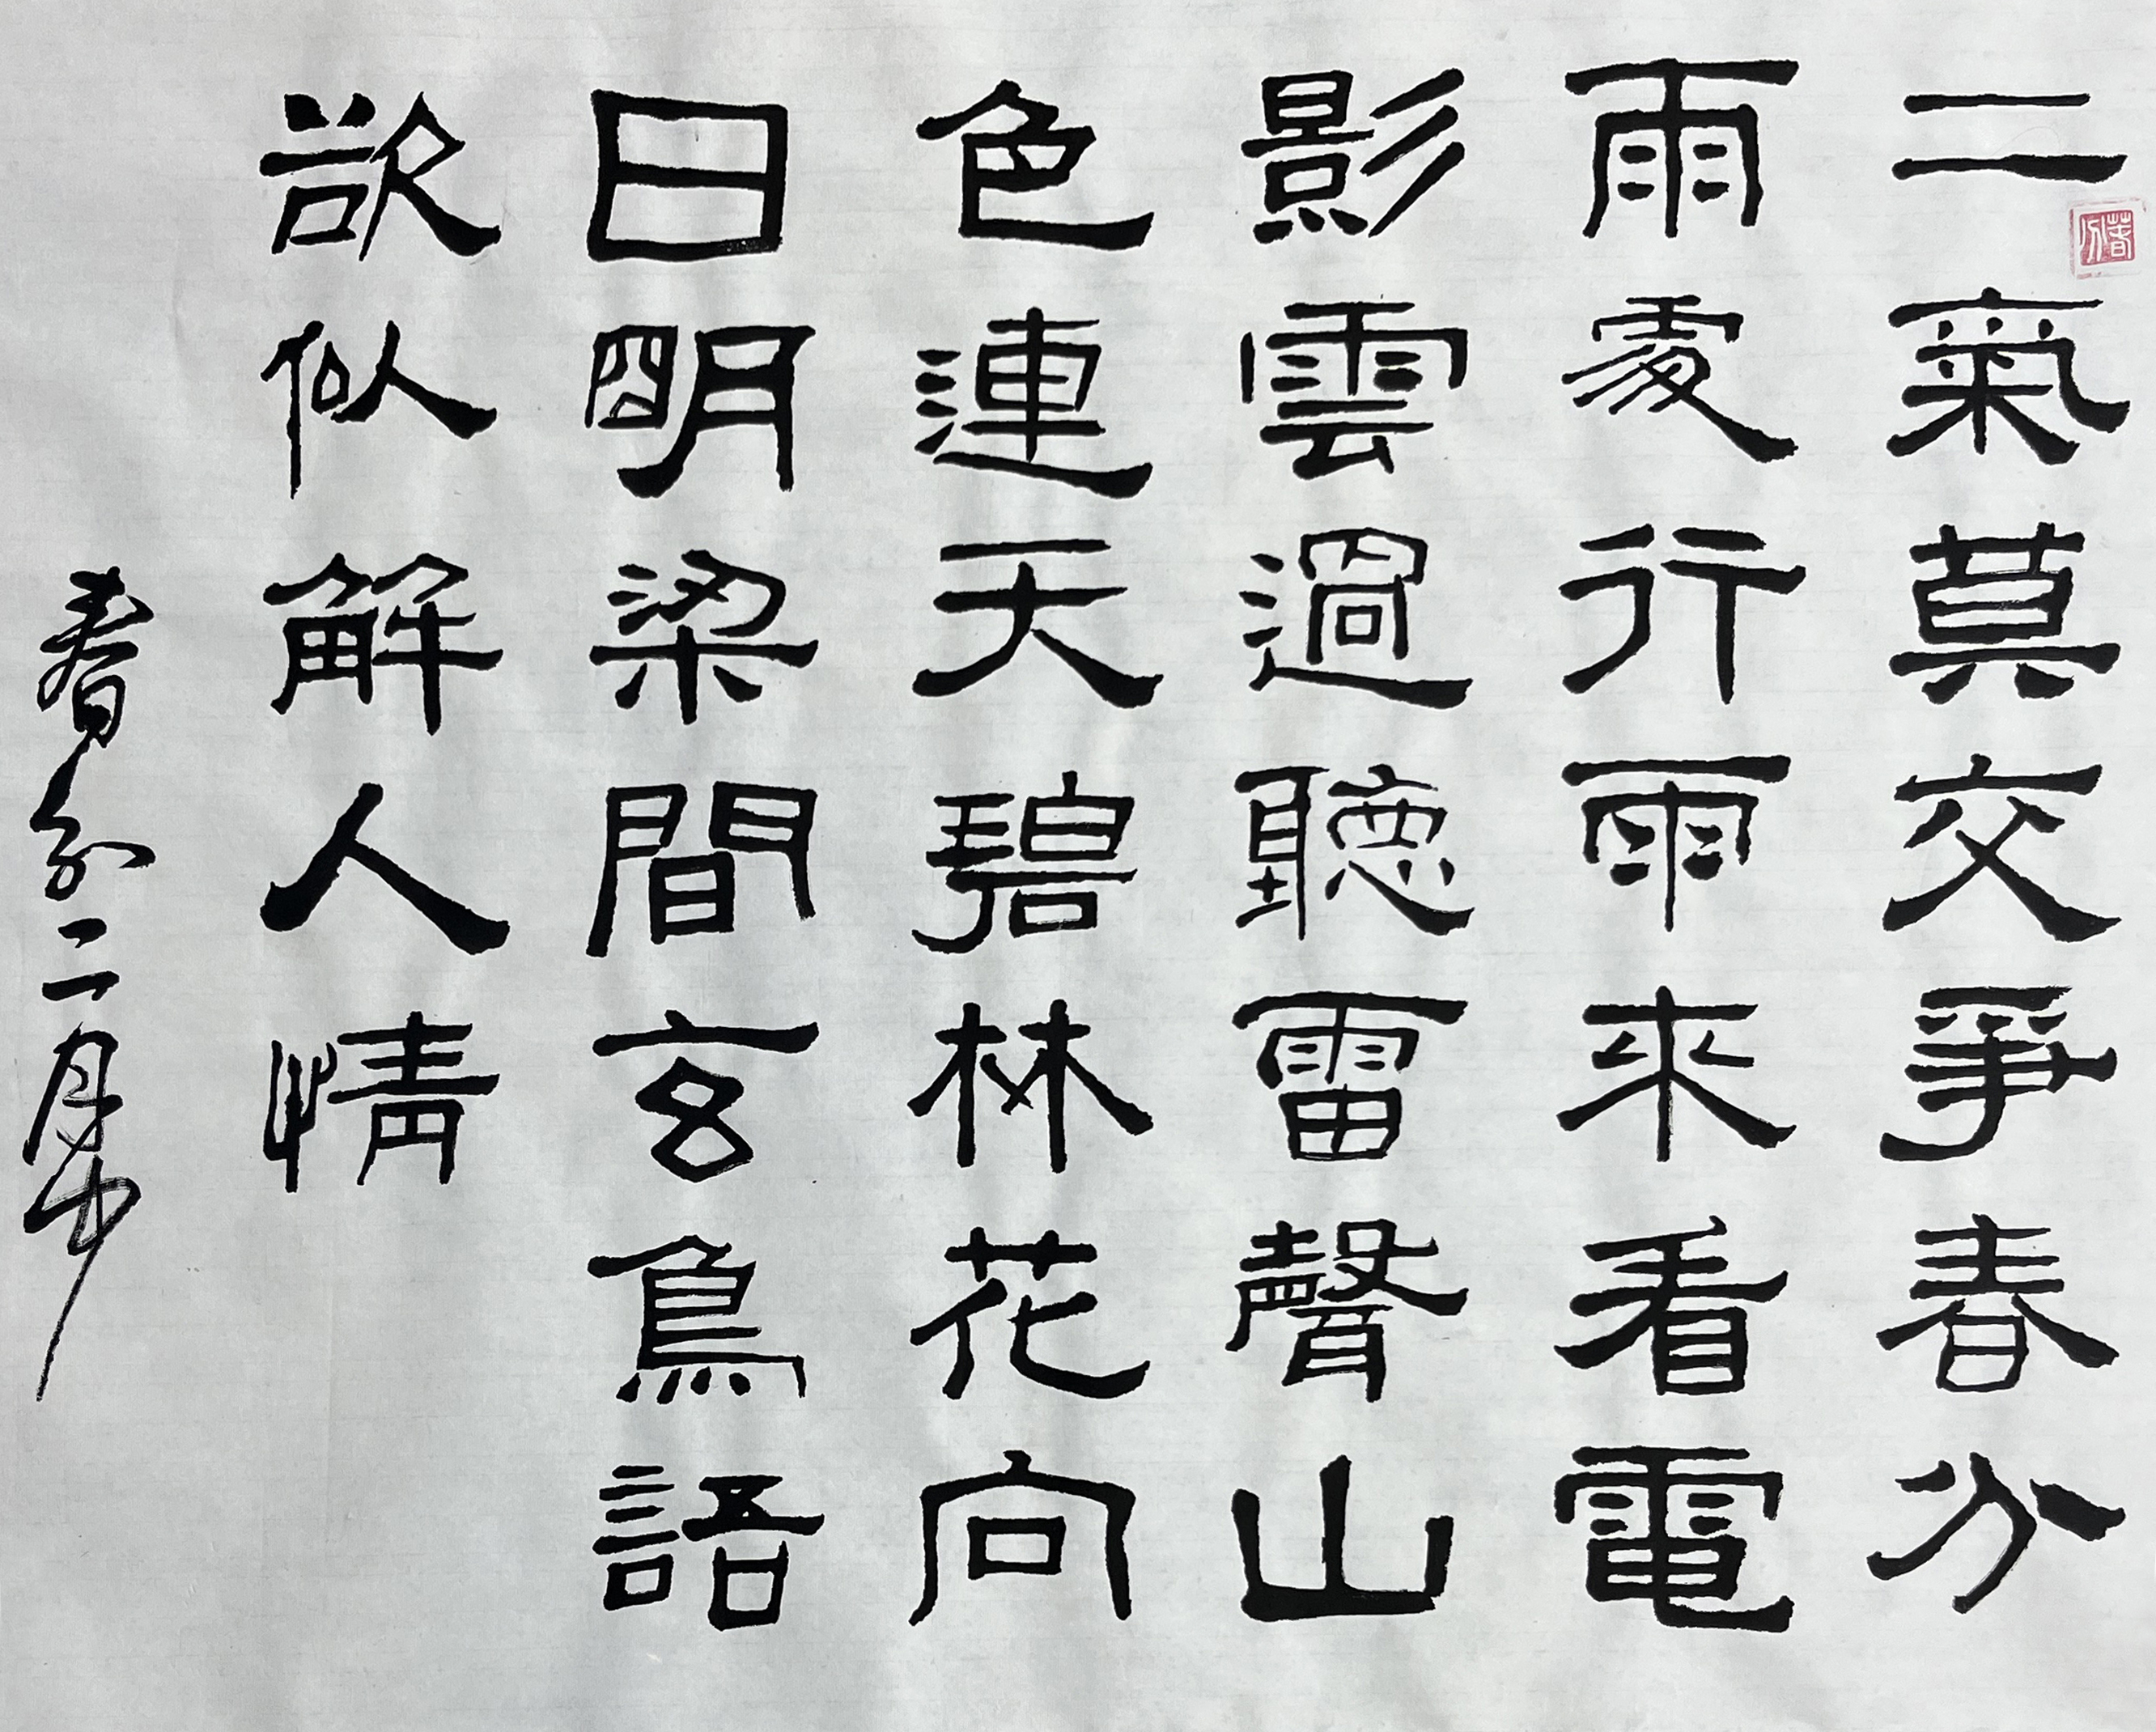 二氣莫交爭春分
雨處行雨來看電
影雲過聽雷聲山
色連天碧林花向
日明梁間玄鳥語
欲似解人情
春分二月中